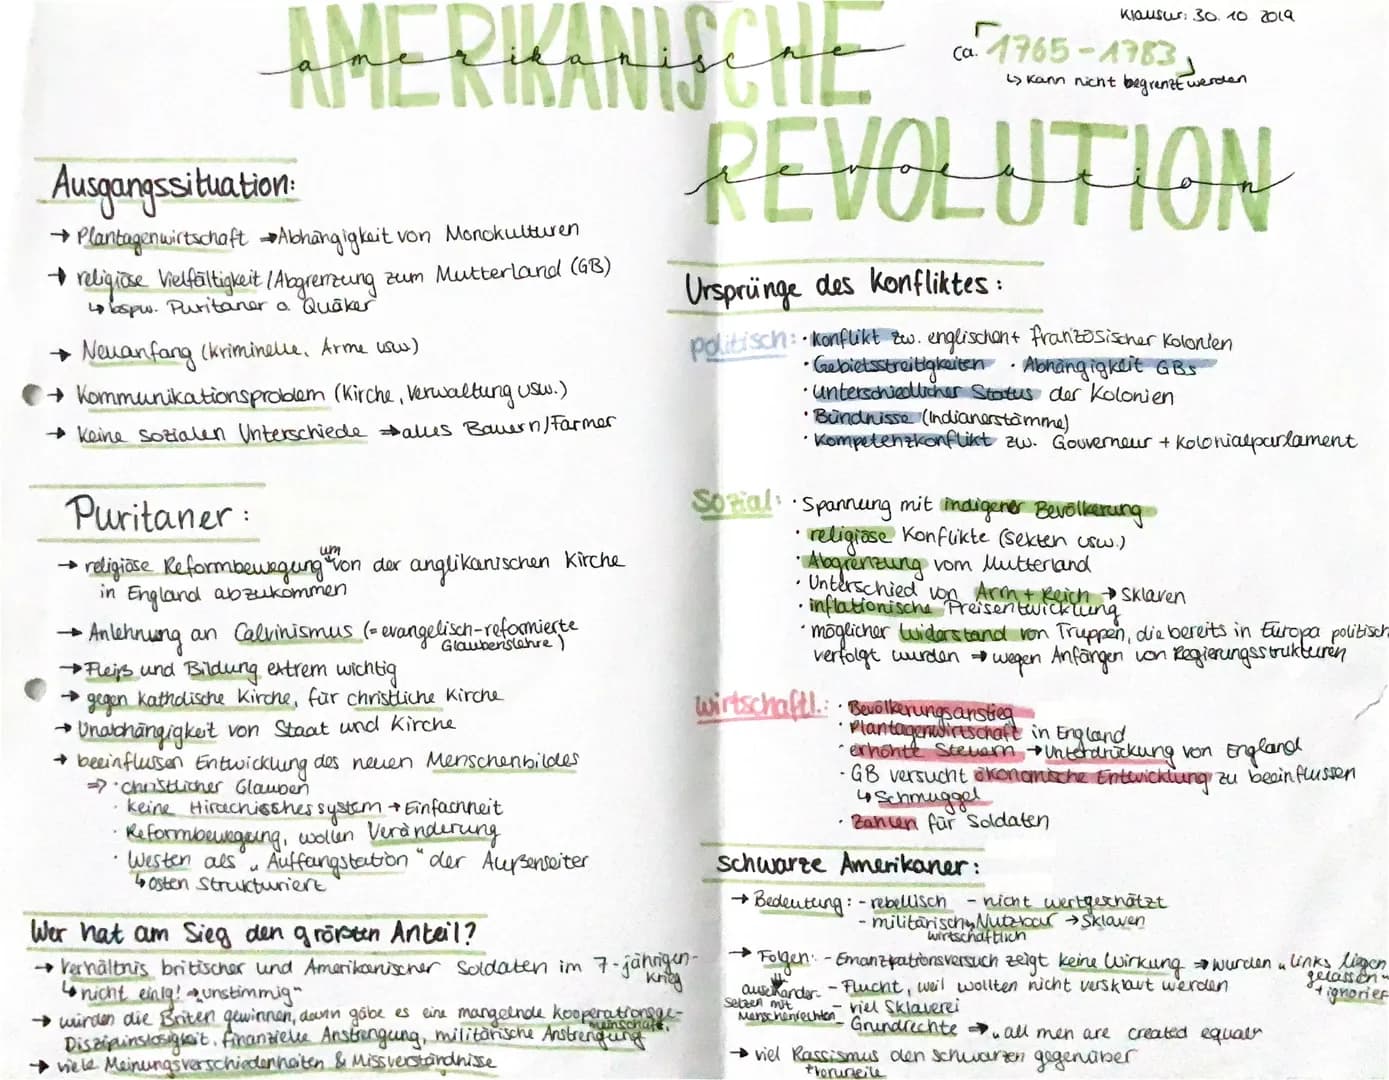 AMERIKANISCHE
amerikanische
Klausur: 30. 10 2019
ca. 1765-1783
↳ kann nicht begrenzt werden
REVOLUTION
revolution
Ausgangssituation:
→ Plantagenwirtschaft → Abhängigkeit von Monokulturen
→ religiöse Vielfältigkeit / Abgrenzung zum Mutterland (GB)
↳ bspw. Puritaner o. Quäker
→ Neuanfang (Kriminelle, Arme usw)
→ Kommunikationsproblem (Kirche, Verwaltung usw.)
→ Keine sozialen Unterschiede → alles Bauern/Farmer
Puritaner:
→ religiöse Reformbewegung um von der anglikanischen Kirche
in England abzukommen
→ Anlehnung an Calvinismus (= evangelisch-reformierte
Glaubenslehre)
→ Fleiß und Bildung extrem wichtig
→ gegen katholische Kirche, für christliche Kirche
→ Unabhängigkeit von Staat und Kirche
→ beeinflussen Entwicklung des neuen Menschenbildes
⇒ · christlicher Glauben
· keine Hirachissches system → Einfachheit
· Reformbewegung, wollen Veränderung
· Westen als „Auffangstation" der Außenseiter
↳ Osten strukturiert
Wer hat am Sieg den größten Anteil?
→ Verhältnis britischer und Amerikanischer Soldaten im 7-jährigen-
Krieg
↳ nicht einig! → unstimmig"
→ würden die Briten gewinnen, dann gäbe es eine mangelnde kooperationsge-
meinschaft,
Disziplinslosigkeit, finanzielle Anstrengung, militärische Anstrengung
→ viele Meinungsverschiedenheiten & Missverständnisse
Ursprünge des Konfliktes:
politisch: · Konflikt zw. englischen + französischer Kolonien
· Gebietsstreitigkeiten · Abhängigkeit GBs
· unterschiedlicher Status der Kolonien
· Bündnisse (Indianerstämme)
· Kompetenzkonflikt zw. Gouverneur + Kolonialparlament
Sozial: · Spannung mit indigener Bevölkerung
· religiöse Konflikte (Sekten usw.)
· Abgrenzung vom Mutterland
· Unterschied von Arm + Reich → Sklaven
· inflationische Preisentwicklung
· möglicher Widerstand von Truppen, die bereits in Europa politisch
verfolgt wurden → wegen Anfängen von Regierungsstrukturen
wirtschaftl.: · Bevölkerungsanstieg
· Plantagenwirtschaft in England
· erhöhte Steuern → Unterdrückung von England
· GB versucht ökonomische Entwicklung zu beeinflussen
↳ Schmuggel
· Zahlen für Soldaten
schwarze Amerikaner:
→ Bedeutung: - rebellisch - nicht wertgeschätzt
- militärisch, Nutzbar → Sklaven
wirtschaftlich
→ Folgen: - Emanzipationsversuch zeigt keine Wirkung ⇒ wurden „links liegen
gelassen"
+ ignoriert
auseinander-
setzen mit
Menschenrechten
- Flucht, weil wollten nicht versklavt werden
- viel Sklaverei
- Grundrechte → „all men are created equal"
→ viel Rassismus den schwarzen gegenüber
+ Vorurteile